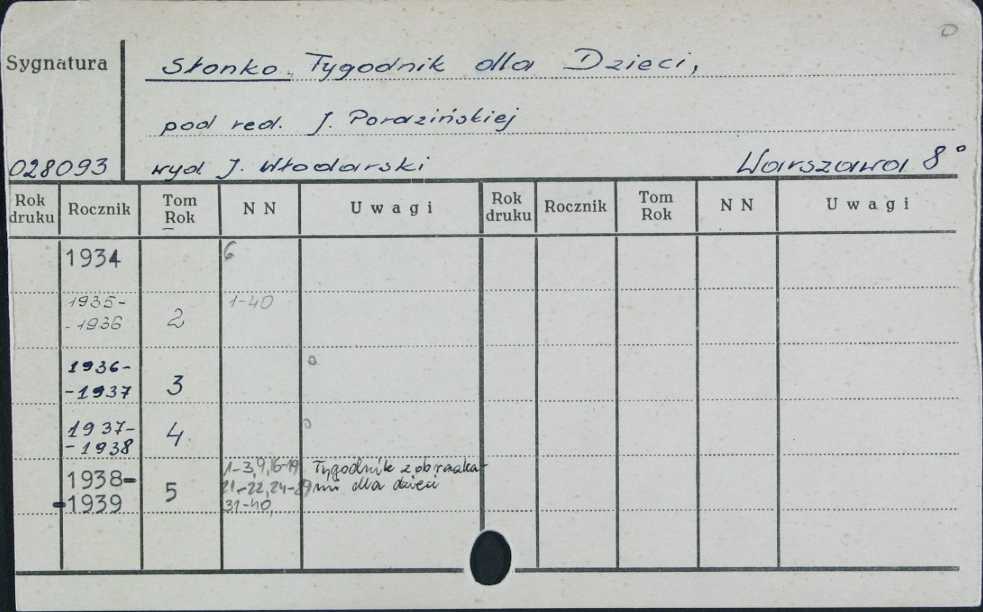 Sygnatura
Słonko. Tygodnik dla Dzieci,
pod red. J. Porazińskiej
028093 wyd J. Włodarski Warszawa 8°
Rok druku Rocznik Tom Rok N N Uwagi Rok druku Rocznik Tom Rok N N Uwagi
1934 6
1935-
-1936 2 1-40
1936-
-1937 3
1937-
-1938 4
1938-
-1939 5
1-3,9,16-19 Tygodnik z obrazka-
21-22,24-29 mi dla dzieci
31-40,